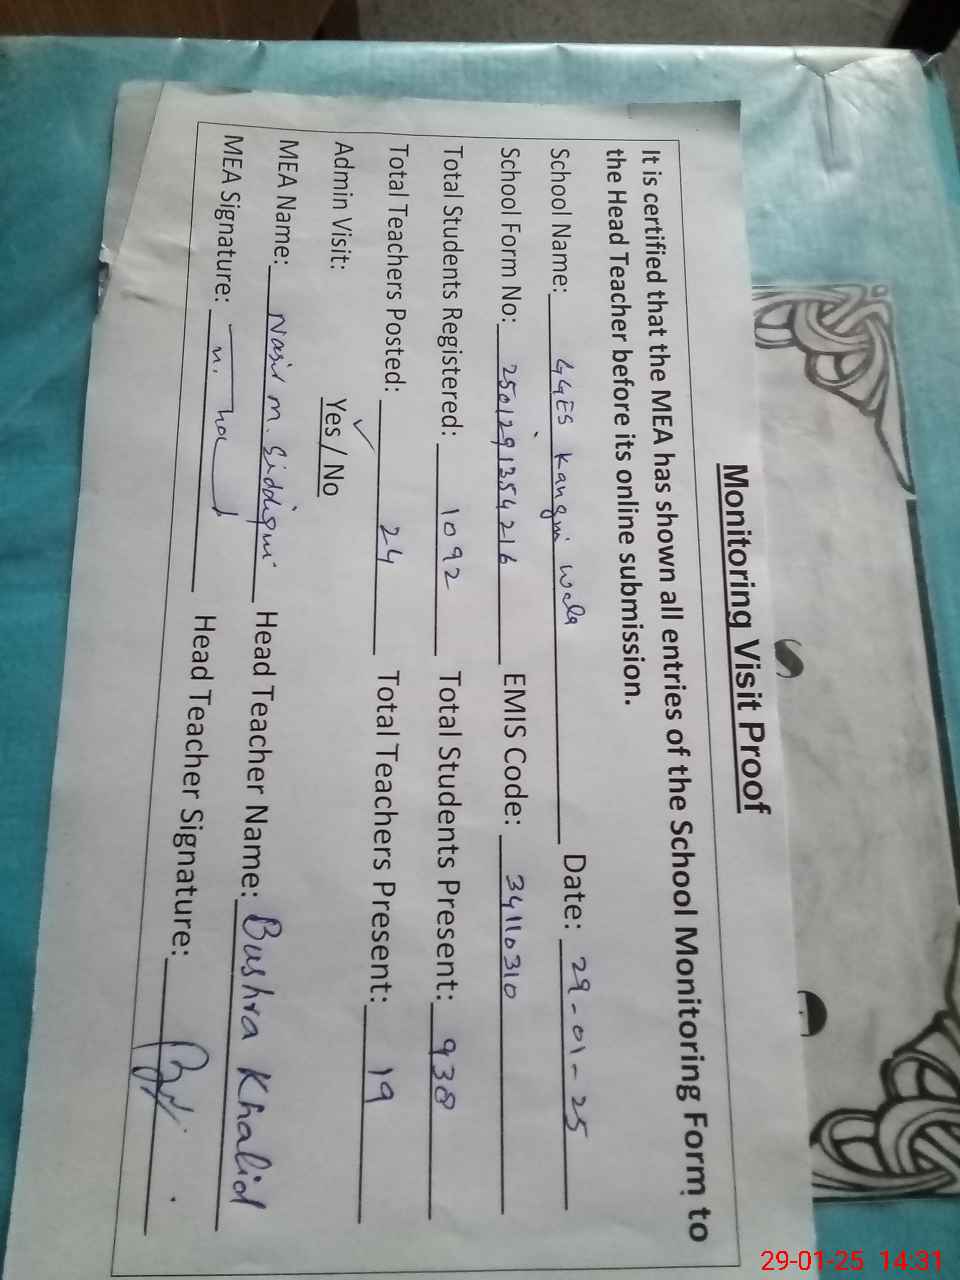 Monitoring Visit Proof
It is certified that the MEA has shown all entries of the School Monitoring Form to
the Head Teacher before its online submission.
School Name: GGES Kangni wala Date: 29-01-25
School Form No: 2501291354216 EMIS Code: 34110310
Total Students Registered: 1092 Total Students Present: 938
Total Teachers Posted: 24 Total Teachers Present: 19
Admin Visit: Yes / No
MEA Name: Nasir M. Siddiqui Head Teacher Name: Bushra Khalid
MEA Signature: Head Teacher Signature:
29-01-25 14:31